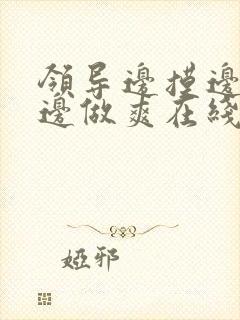 領导邊摸邊
邊做爽在綫
婭邪